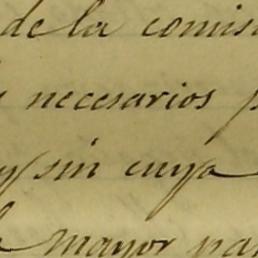 de la comis
necesarios p
y sin cuya
mayor par